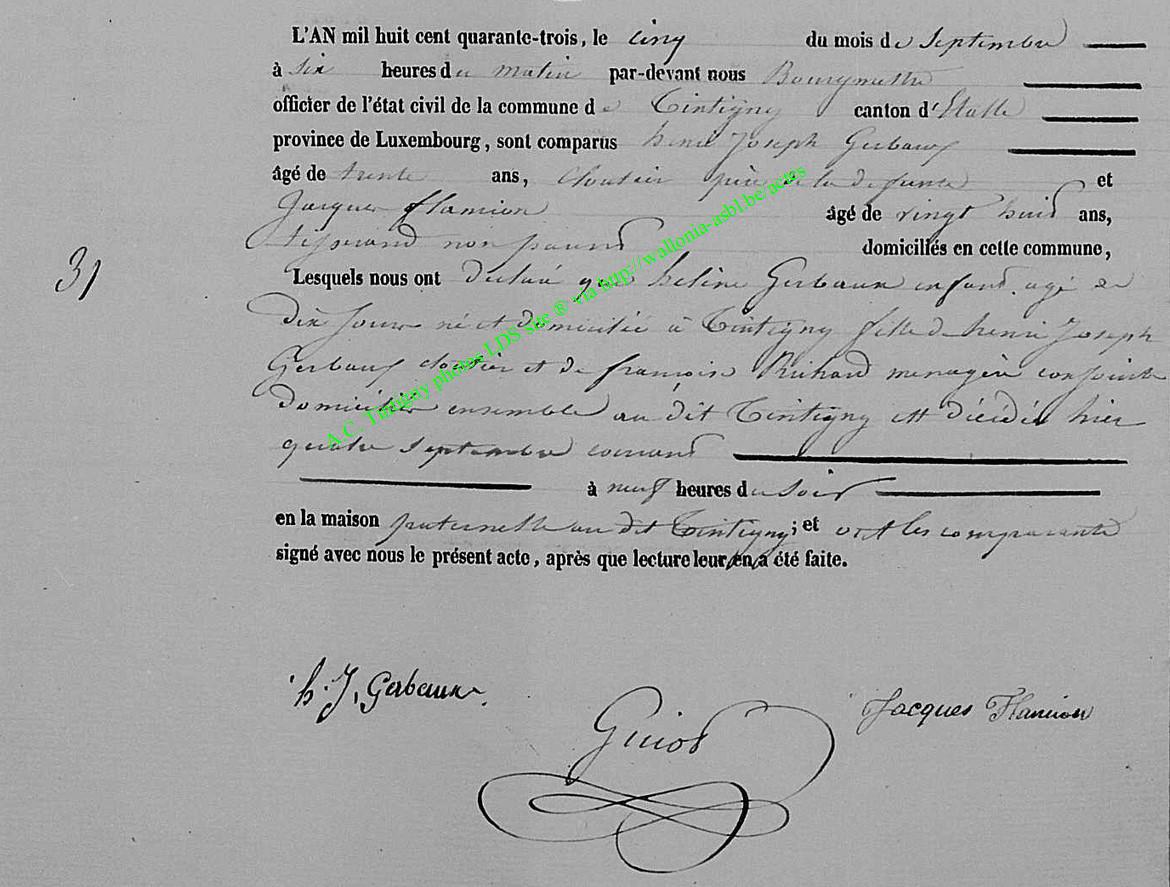 L'AN mil huit cent quarante-trois, le cinq du mois de Septembre
à six heures du matin par-devant nous Bourgmestre
officier de l'état civil de la commune de Tintigny canton d'Etalle
province de Luxembourg, sont comparus henri Joseph Gerbaux
âgé de trente ans, cloutier père de la defunte et
Jacques flamion âgé de vingt huit ans,
tisserand non parent domiciliés en cette commune,
31
Lesquels nous ont déclaré que hélène Gerbaux enfant agé de
dix jours né et domiciliée à Tintigny fille de henri Joseph
Gerbaux cloutier et de françoise Richard menagère conjoints
domiciliés ensemble au dit Tintigny est décédée hier
quatre septembre courant
à neuf heures du soir
en la maison paternelle au dit Tintigny; et ont les comparants
signé avec nous le présent acte, après que lecture leur en a été faite.
A.C. Tintigny photos LDS site ® via http://wallonia-asbl.be/actes
h. J. Gerbaux
Guiot
Jacques Flamion